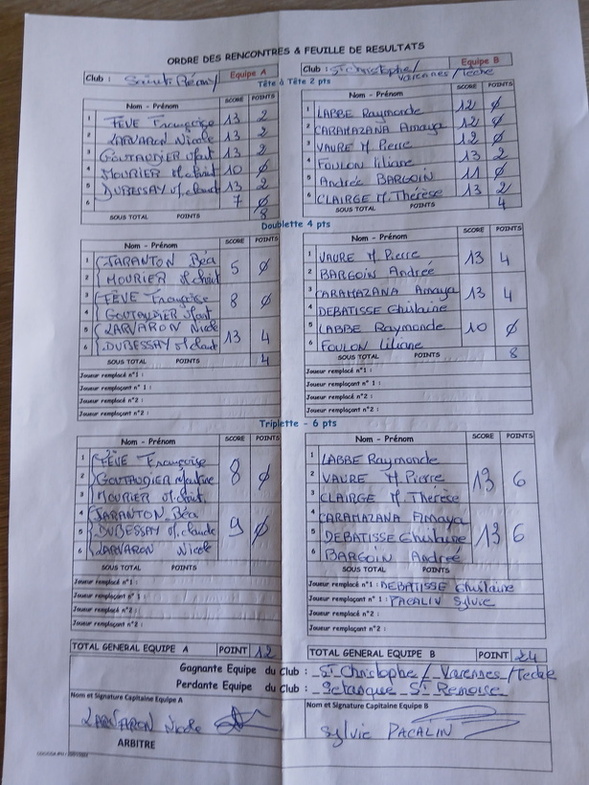 ORDRE DES RENCONTRES & FEUILLE DE RESULTATS
Club : Saint Rémy/ Equipe A
Club : St Christophe/ Varennes/Teche Equipe B
Tête à Tête 2 pts
Nom - Prénom SCORE POINTS
1 FEVE Françoise 13 2
2 LARVARON Nicole 13 2
3 GOUTAUDIER Mart 13 2
4 MOURIER M.christ 10 0
5 DUBESSAY M.claud 13 2
6 7 0
SOUS TOTAL POINTS 8
Nom - Prénom SCORE POINTS
1 LABBE Raymonde 12 0
2 CARAMAZANA Amaya 12 0
3 VAURE M Pierre 12 0
4 FOULON Liliane 13 2
5 Andrée BARGOIN 11 0
6 CLAIRGE M. Thérèse 13 2
SOUS TOTAL POINTS 4
Doublette 4 pts
Nom - Prénom SCORE POINTS
1 TARANTON Béa 5 0
2 MOURIER M.christ
3 FEVE Françoise 8 0
4 GOUTAUDIER Mart
5 LARVARON Nicole 13 4
6 DUBESSAY M.claud
SOUS TOTAL POINTS 4
Joueur remplacé n°1 :
Joueur remplaçant n° 1 :
Joueur remplacé n°2 :
Joueur remplaçant n°2 :
Nom - Prénom SCORE POINTS
1 VAURE M Pierre 13 4
2 BARGOIN Andrée
3 CARAMAZANA Amaya 13 4
4 DEBATISSE Ghislaine
5 LABBE Raymonde 10 0
6 FOULON Liliane
SOUS TOTAL POINTS 8
Joueur remplacé n°1 :
Joueur remplaçant n° 1 :
Joueur remplacé n°2 :
Joueur remplaçant n°2 :
Triplette - 6 pts
Nom - Prénom SCORE POINTS
1 FEVE Françoise
2 GOUTAUDIER Martine 8 0
3 MOURIER M.christ
4 TARANTON Béa
5 DUBESSAY M.claude 9 0
6 LARVARON Nicole
SOUS TOTAL POINTS
Joueur remplacé n°1 :
Joueur remplaçant n°1 :
Joueur remplacé n°2 :
Joueur remplaçant n°2 :
Nom - Prénom SCORE POINTS
1 LABBE Raymonde
2 VAURE M Pierre 13 6
3 CLAIRGE M Thérèse
4 CARAMAZANA Amaya
5 DEBATISSE Ghislaine 13 6
6 BARGOIN Andrée
SOUS TOTAL POINTS
Joueur remplacé n°1 : DEBATISSE Ghislaine
Joueur remplaçant n°1 : PACALIN Sylvie
Joueur remplacé n°2 :
Joueur remplaçant n°2 :
TOTAL GENERAL EQUIPE A POINT 12
TOTAL GENERAL EQUIPE B POINT 24
Gagnante Equipe du Club : St Christophe/ Varennes/Teche
Perdante Equipe du Club : St Remoise
Nom et Signature Capitaine Equipe A
LARVARON Nicole
Nom et Signature Capitaine Equipe B
Sylvie PACALIN
ARBITRE